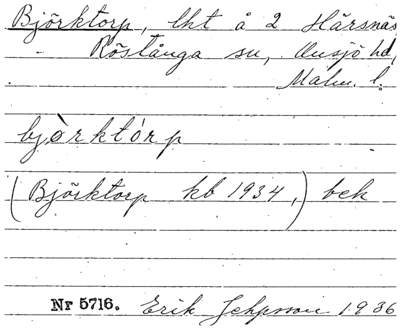 Björktorp, lht å 2 Härsnäs
Röstånga sn, Onsjö hd,
Malm. l.
bjòrktórp
(Björktorp kb 1934,) bek
Nr 5716. Erik Jeppsson 1936